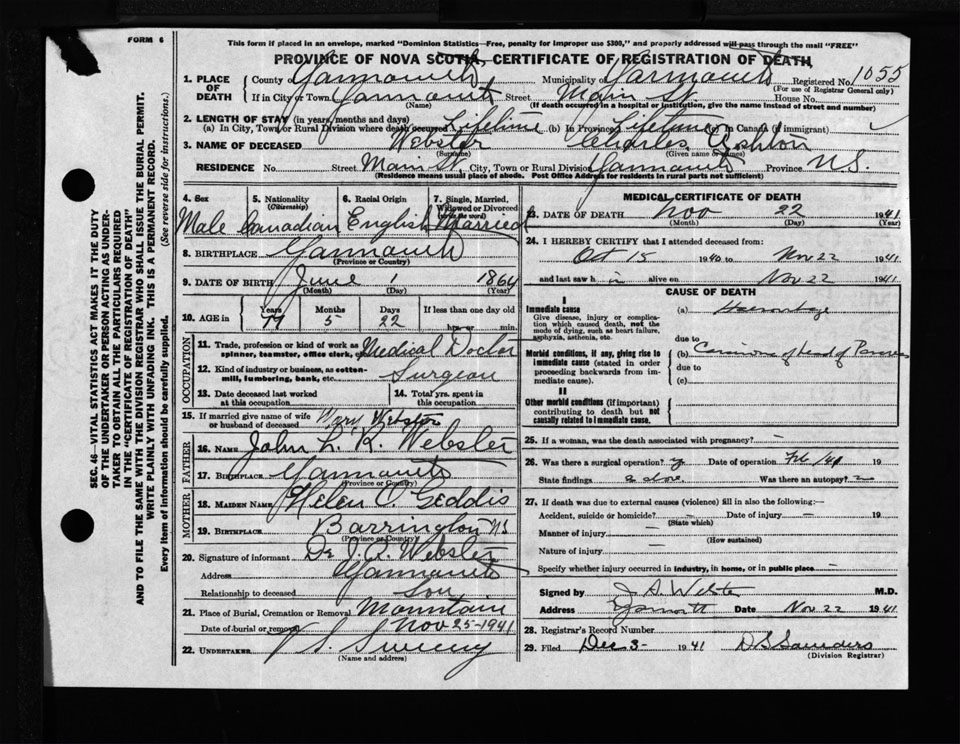 FORM 6
This form if placed in an envelope, marked "Dominion Statistics—Free, penalty for improper use $300," and properly addressed will pass through the mail "FREE"
PROVINCE OF NOVA SCOTIA, CERTIFICATE OF REGISTRATION OF DEATH,
1. PLACE OF DEATH County of Yarmouth Municipality of Yarmouth Registered No. 1055
(For use of Registrar General only)
If in City or Town Yarmouth Street Main St. House No.
(Name) (If death occurred in a hospital or institution, give the name instead of street and number)
2. LENGTH OF STAY (in years, months and days)
(a) In City, Town or Rural Division where death occurred Lifetime (b) In Province Lifetime (c) In Canada (if immigrant)
3. NAME OF DECEASED Webster Charles Ashton
(Surname) (Given name or names)
RESIDENCE No. Street Main St. City, Town or Rural Division Yarmouth Province N.S.
(Residence means usual place of abode. Post Office Address for residents in rural parts not sufficient)
4. Sex 5. Nationality 6. Racial Origin 7. Single, Married, Widowed or Divorced
(Citizenship) (write the word)
Male Canadian English Married
8. BIRTHPLACE Yarmouth
(Province or Country)
9. DATE OF BIRTH June 1 1864
(Month) (Day) (Year)
10. AGE in Years Months Days If less than one day old
77 5 22 hrs or min.
OCCUPATION
11. Trade, profession or kind of work as spinner, teamster, office clerk, etc. Medical Doctor
12. Kind of industry or business, as cotton-mill, lumbering, bank, etc. Surgeon
13. Date deceased last worked at this occupation
14. Total yrs. spent in this occupation
15. If married give name of wife or husband of deceased Mary Webster
FATHER
16. NAME John L. R. Webster
17. BIRTHPLACE Yarmouth
(Province or Country)
MOTHER
18. MAIDEN NAME Helen O. Geddis
19. BIRTHPLACE Barrington N.S
(Province or Country)
20. Signature of informant Dr J. A. Webster
Address Yarmouth
Relationship to deceased Son
21. Place of Burial, Cremation or Removal Mountain
Date of burial or removal Nov 25-1941
22. UNDERTAKER V. S. Sweeny
(Name and address)
MEDICAL CERTIFICATE OF DEATH
23. DATE OF DEATH Nov 22 1941
(Month) (Day) (Year)
24. I HEREBY CERTIFY that I attended deceased from:
Oct 15 1940 to Nov 22 1941
and last saw h in alive on Nov 22 1941
CAUSE OF DEATH
I
Immediate cause (a) Haemorrhage
Give disease, injury or complication which caused death, not the mode of dying, such as heart failure, asphyxia, asthenia, etc.
due to
Morbid conditions, if any, giving rise to immediate cause (stated in order proceeding backwards from immediate cause).
(b) Carcinoma of head of Pancreas
due to
(c)
II
Other morbid conditions (if important) contributing to death but not causally related to immediate cause.
25. If a woman, was the death associated with pregnancy? —
26. Was there a surgical operation? y Date of operation Feb /40 19
State findings above Was there an autopsy?
27. If death was due to external causes (violence) fill in also the following:—
Accident, suicide or homicide? — Date of injury — 19
(State which)
Manner of injury —
(How sustained)
Nature of injury —
Specify whether injury occurred in industry, in home, or in public place —
Signed by J A. Webster M.D.
Address Yarmouth Date Nov. 22 1941
28. Registrar's Record Number
29. Filed Dec 3- 1941 D S Saunders
(Division Registrar)
SEC. 46—VITAL STATISTICS ACT MAKES IT THE DUTY
OF THE UNDERTAKER OR PERSON ACTING AS UNDER-
TAKER TO OBTAIN ALL THE PARTICULARS REQUIRED
IN THE "CERTIFICATE OF REGISTRATION OF DEATH"
AND TO FILE THE SAME WITH THE DIVISION REGISTRAR WHO SHALL ISSUE THE BURIAL PERMIT.
WRITE PLAINLY WITH UNFADING INK. THIS IS A PERMANENT RECORD.
Every item of information should be carefully supplied. (See reverse side for instructions.)